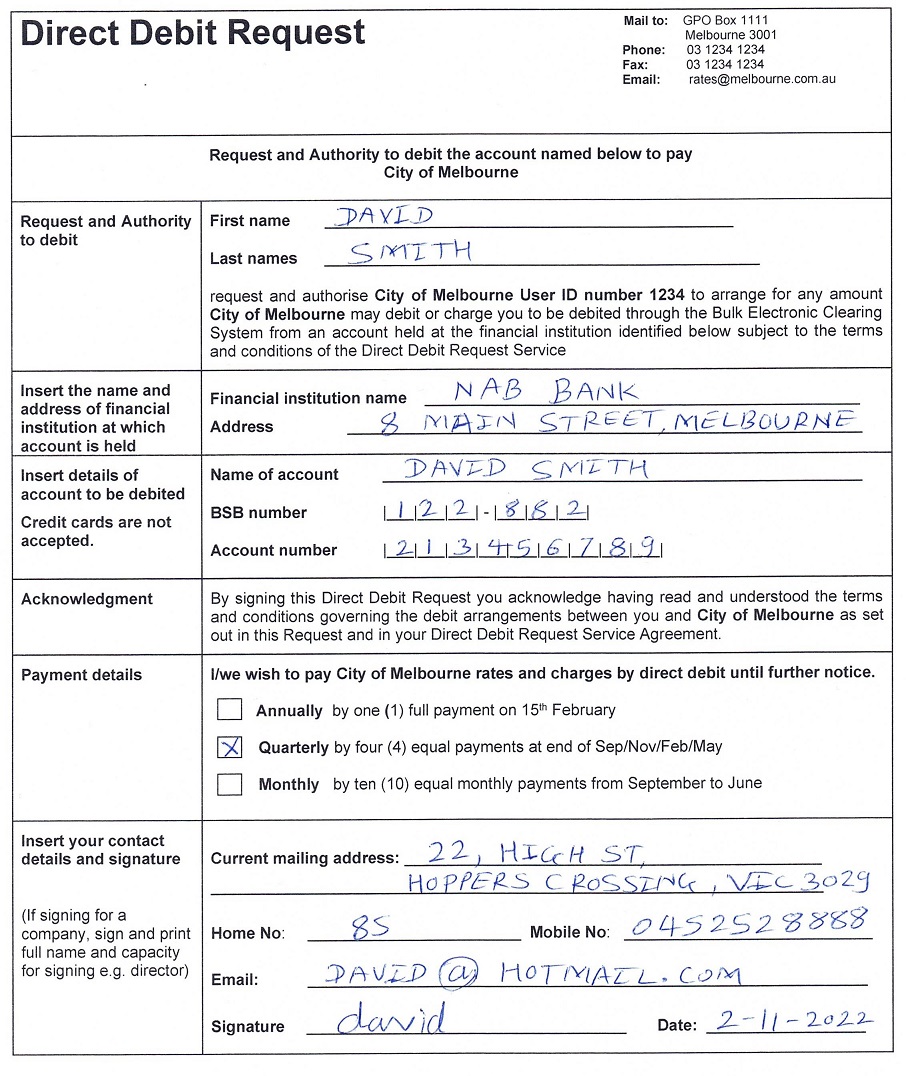 Direct Debit Request
Mail to: GPO Box 1111
Melbourne 3001
Phone: 03 1234 1234
Fax: 03 1234 1234
Email: rates@melbourne.com.au
Request and Authority to debit the account named below to pay
City of Melbourne
Request and Authority
to debit
First name DAVID
Last names SMITH
request and authorise City of Melbourne User ID number 1234 to arrange for any amount
City of Melbourne may debit or charge you to be debited through the Bulk Electronic Clearing
System from an account held at the financial institution identified below subject to the terms
and conditions of the Direct Debit Request Service
Insert the name and
address of financial
institution at which
account is held
Financial institution name NAB BANK
Address 8 MAIN STREET, MELBOURNE
Insert details of
account to be debited
Credit cards are not
accepted.
Name of account DAVID SMITH
BSB number 122-882
Account number 213456789
Acknowledgment
By signing this Direct Debit Request you acknowledge having read and understood the terms
and conditions governing the debit arrangements between you and City of Melbourne as set
out in this Request and in your Direct Debit Request Service Agreement.
Payment details
I/we wish to pay City of Melbourne rates and charges by direct debit until further notice.
Annually by one (1) full payment on 15th February
X Quarterly by four (4) equal payments at end of Sep/Nov/Feb/May
Monthly by ten (10) equal monthly payments from September to June
Insert your contact
details and signature
(If signing for a
company, sign and print
full name and capacity
for signing e.g. director)
Current mailing address: 22, HIGH ST,
HOPPERS CROSSING, VIC 3029
Home No: 85
Mobile No: 0452528888
Email: DAVID@HOTMAIL.COM
Signature david
Date: 2-11-2022